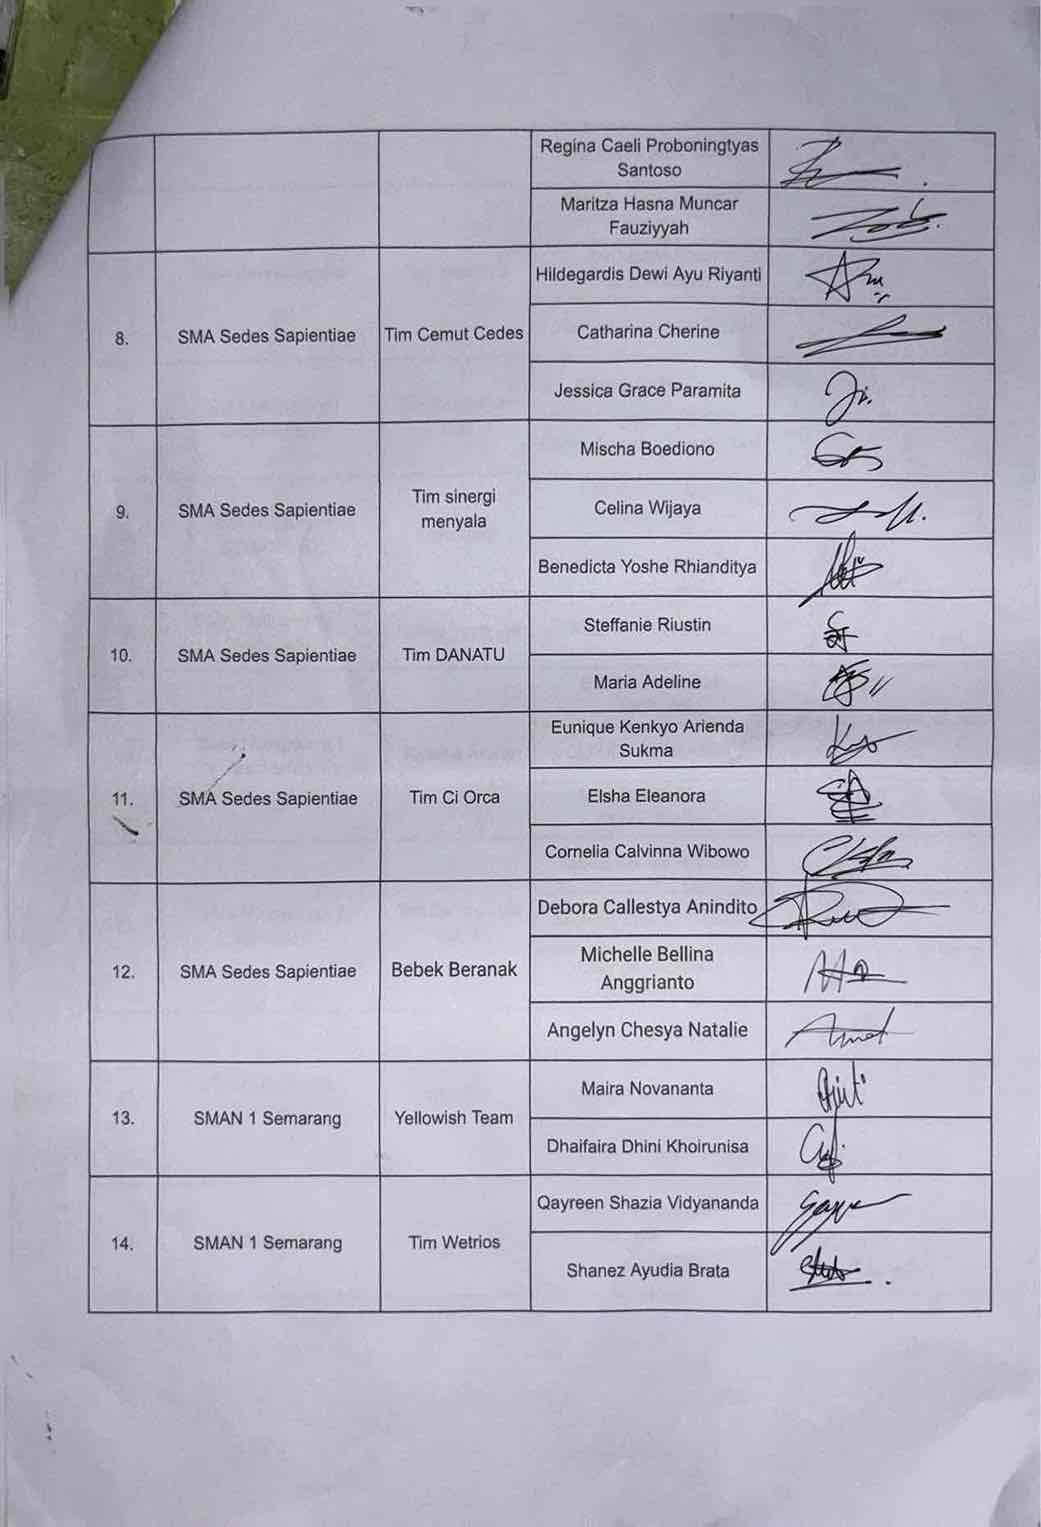 Regina Caeli Proboningtyas
Santoso
Maritza Hasna Muncar
Fauziyyah
8.
SMA Sedes Sapientiae
Tim Cemut Cedes
Hildegardis Dewi Ayu Riyanti
Catharina Cherine
Jessica Grace Paramita
9.
SMA Sedes Sapientiae
Tim sinergi
menyala
Mischa Boediono
Celina Wijaya
Benedicta Yoshe Rhianditya
10.
SMA Sedes Sapientiae
Tim DANATU
Steffanie Riustin
Maria Adeline
11.
SMA Sedes Sapientiae
Tim Ci Orca
Eunique Kenkyo Arienda
Sukma
Elsha Eleanora
Cornelia Calvinna Wibowo
12.
SMA Sedes Sapientiae
Bebek Beranak
Debora Callestya Anindito
Michelle Bellina
Anggrianto
Angelyn Chesya Natalie
13.
SMAN 1 Semarang
Yellowish Team
Maira Novananta
Dhaifaira Dhini Khoirunisa
14.
SMAN 1 Semarang
Tim Wetrios
Qayreen Shazia Vidyananda
Shanez Ayudia Brata